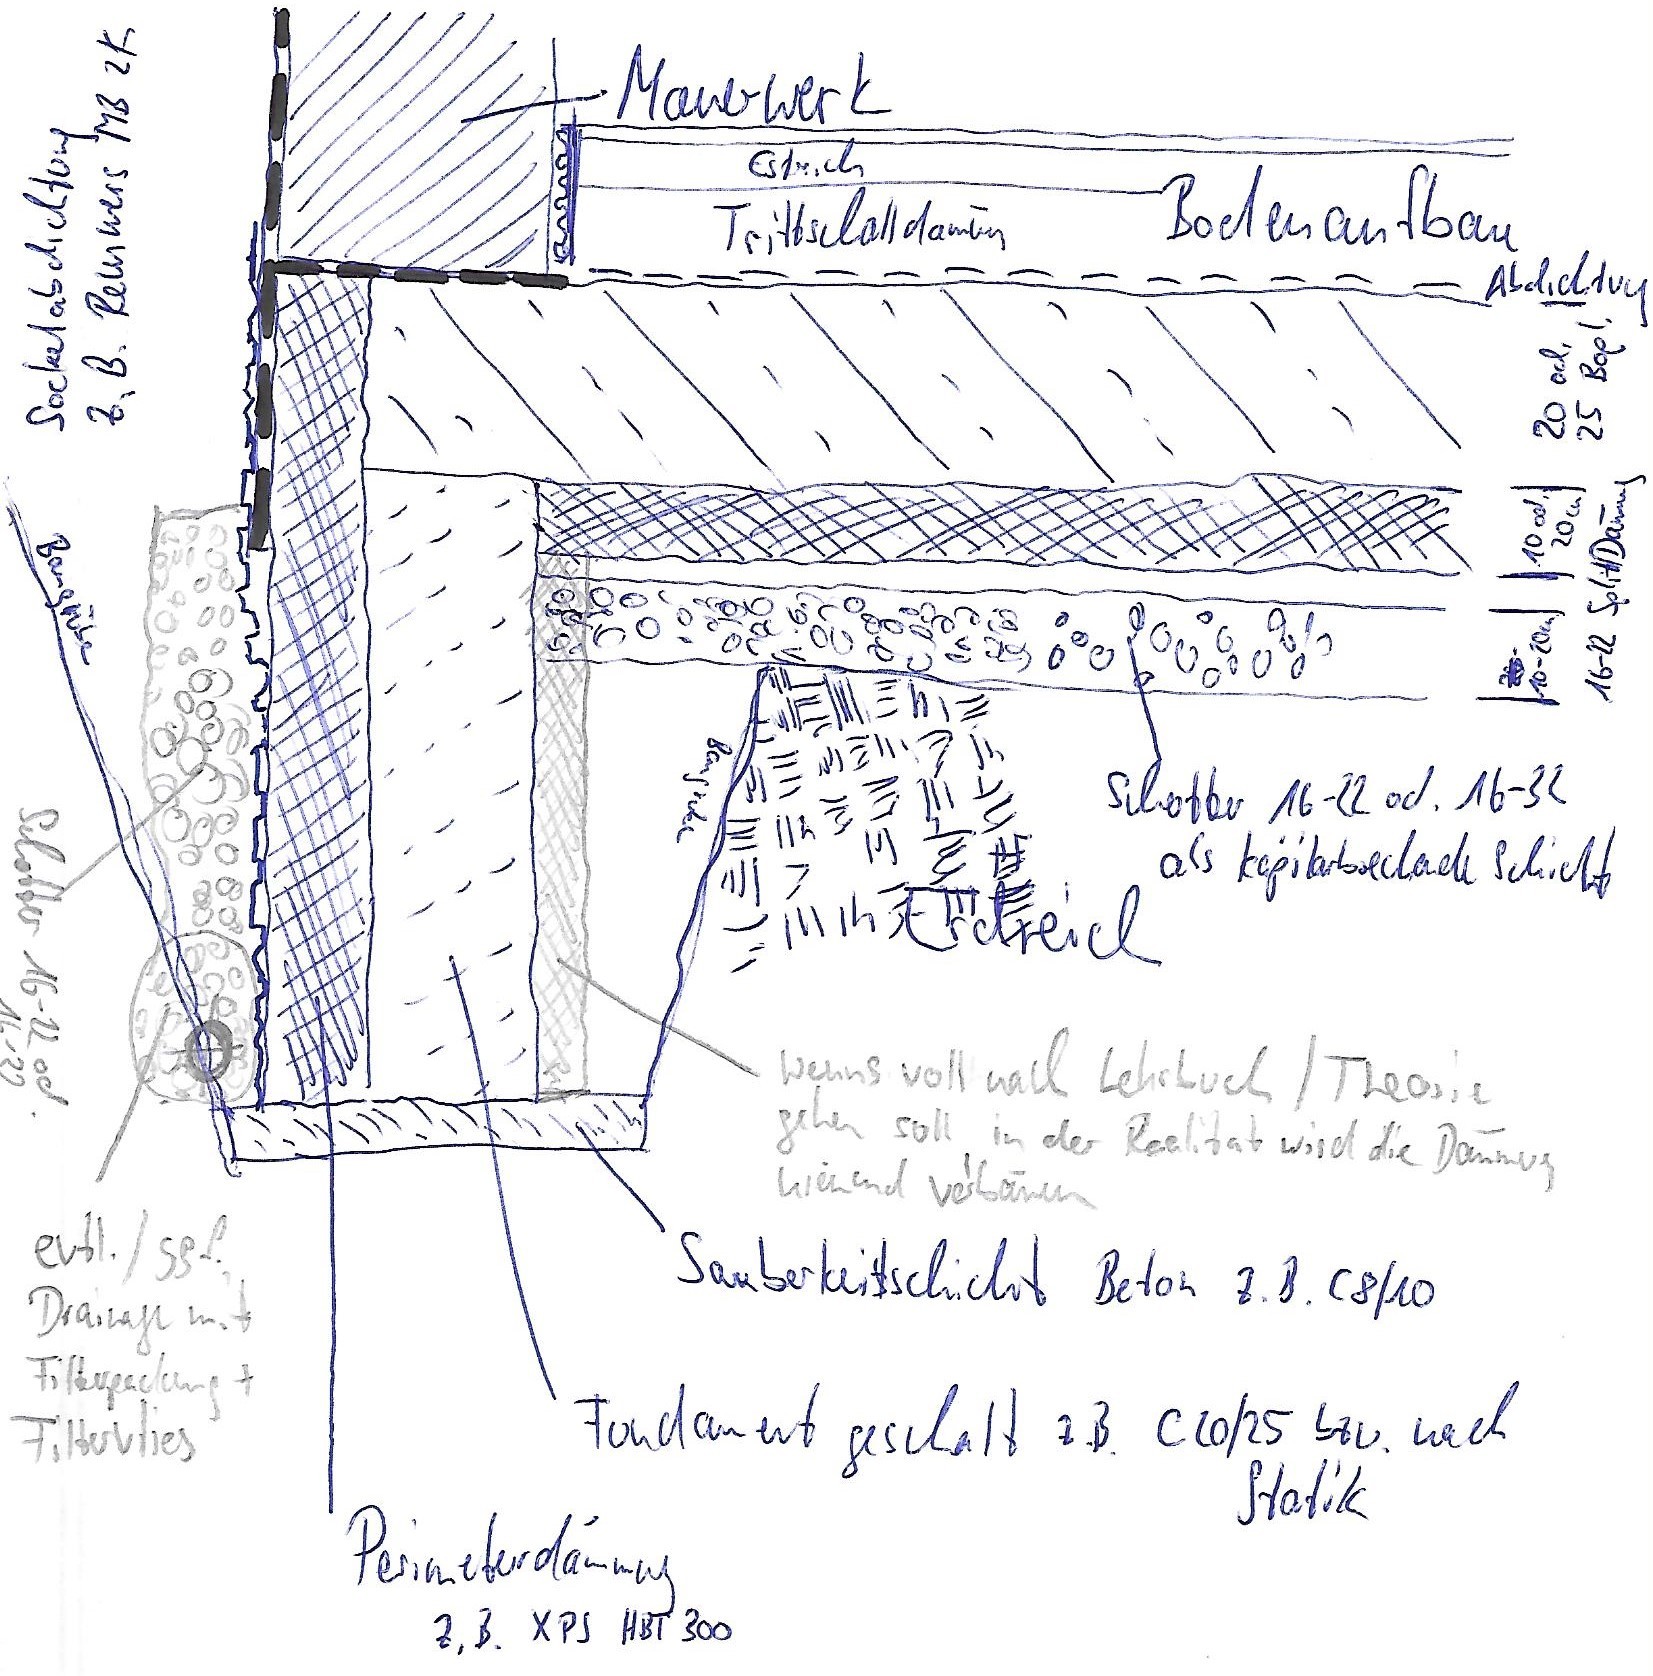 Sockelabdichtung
z.B. Remmers MB 2K
Mauerwerk
Estrich
Trittschalldämm
Bodenaufbau
Abdichtung
20 od.
25 Bopl.
10 od.
20cm
Dämmung
10-20cm
16-22 Splitt
Baugrube
Baugrube
Schotter 16-22 od.
16-32
Schotter 16-22 od. 16-32
als kapilarbrechende Schicht
Erdreich
wenns voll nach Lehrbuch / Theorie
gehen soll in der Realität wird die Dämmung
niemand verbauen
Sauberkeitsschicht Beton z.B. C8/10
evtl. / ggf.
Drainage mit
Filterpackung +
Filtervlies
Fundament geschalt z.B. C20/25 bzw. nach
Statik
Perimeterdämmung
z.B. XPS HBT 300